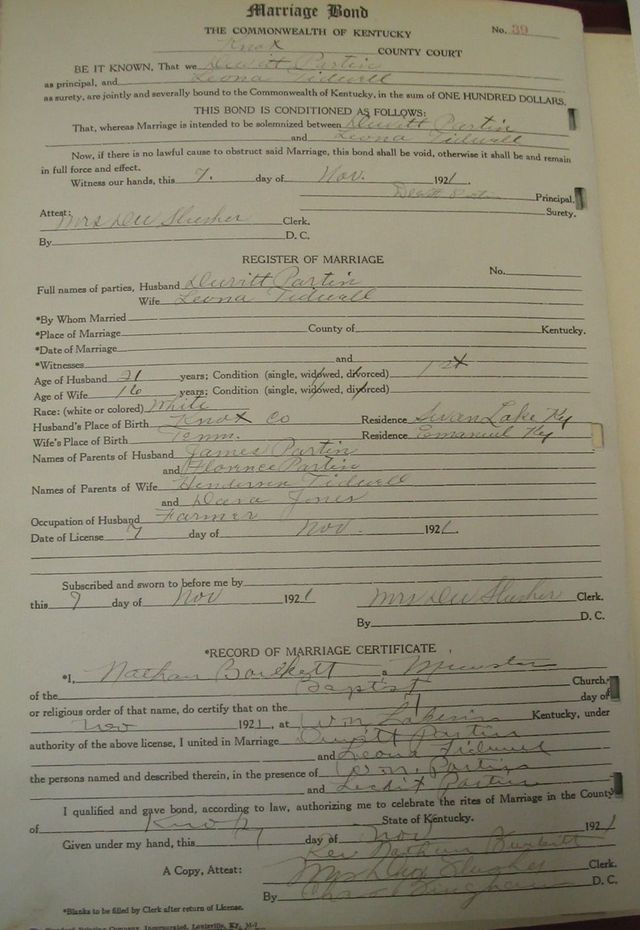 Marriage Bond
THE COMMONWEALTH OF KENTUCKY No. 39
Knox COUNTY COURT
BE IT KNOWN, That we Dewitt Partin
as principal, and Leona Tidwell
as surety, are jointly and severally bound to the Commonwealth of Kentucky, in the sum of ONE HUNDRED DOLLARS.
THIS BOND IS CONDITIONED AS FOLLOWS:
That, whereas Marriage is intended to be solemnized between Dewitt Partin
and Leona Tidwell
Now, if there is no lawful cause to obstruct said Marriage, this bond shall be void, otherwise it shall be and remain
in full force and effect.
Witness our hands, this 7. day of Nov. 1921.
Principal.
Surety.
Attest:
Mrs Dee Slusher Clerk.
By D. C.
REGISTER OF MARRIAGE
No.
Full names of parties, Husband Dewitt Partin
Wife Leona Tidwell
*By Whom Married
*Place of Marriage County of Kentucky.
*Date of Marriage
*Witnesses and
Age of Husband 21 years; Condition (single, widowed, divorced) 1st
Age of Wife 16 years; Condition (single, widowed, divorced)
Race: (white or colored) White
Husband's Place of Birth Knox Co Residence Swan Lake Ky
Wife's Place of Birth Tenn. Residence Emanuel Ky
Names of Parents of Husband James Partin
and Florence Partin
Names of Parents of Wife Henderson Tidwell
and Dora Jones
Occupation of Husband Farmer
Date of License 7 day of Nov. 1921.
Subscribed and sworn to before me by
this 7 day of Nov 1921 Mrs Dee Slusher Clerk.
By D. C.
*RECORD OF MARRIAGE CERTIFICATE
*I, Nathan a Minister
of the Baptist Church,
or religious order of that name, do certify that on the day of
Nov 1921, at Wm Kentucky, under
authority of the above license, I united in Marriage Dewitt Partin
and Leona Tidwell
the persons named and described therein, in the presence of Wm. Partin
and Partin
I qualified and gave bond, according to law, authorizing me to celebrate the rites of Marriage in the County
of Knox State of Kentucky.
Given under my hand, this 7 day of Nov 1921
Rev Nathan
A Copy, Attest: Mrs Dee Slusher Clerk.
By D. C.
*Blanks to be filled by Clerk after return of License.
Incorporated, Louisville, Ky.